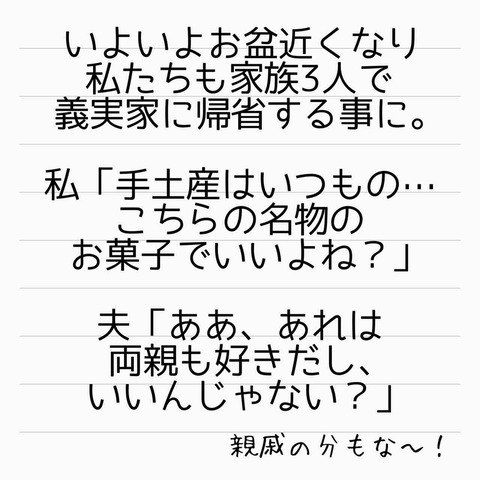 いよいよお盆近くなり
私たちも家族3人で
義実家に帰省する事に。
私「手土産はいつもの…
こちらの名物の
お菓子でいいよね？」
夫「ああ、あれは
両親も好きだし、
いいんじゃない？」
親戚の分もな〜！